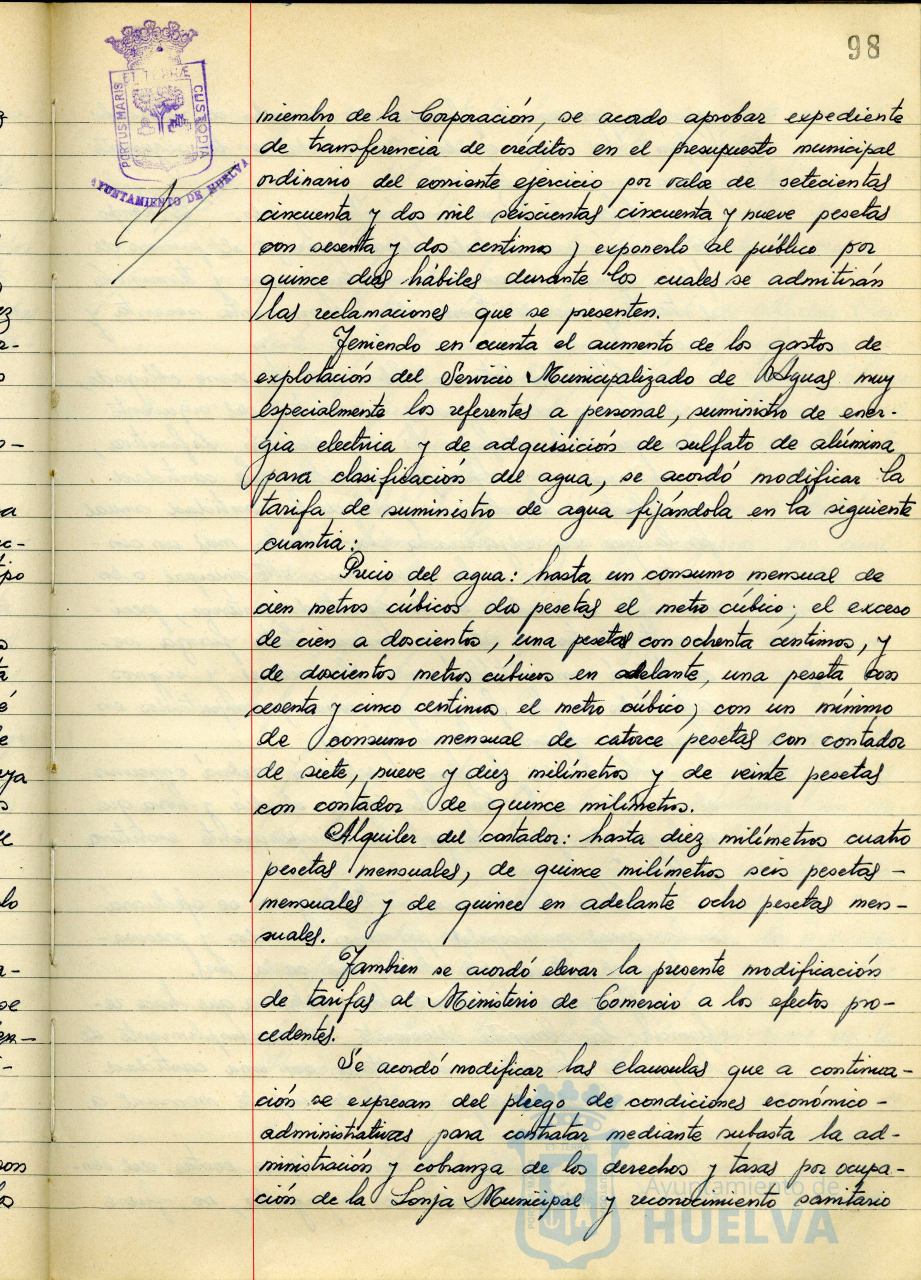 98
PORTUS MARIS
ET TERRÆ
CUSTODIA
AYUNTAMIENTO DE HUELVA
miembro de la Corporación, se acordo aprobar expediente
de transferencia de créditos en el presupuesto municipal
ordinario del corriente ejercicio por valor de setecientas
cincuenta y dos mil seiscientas cincuenta y nueve pesetas
con sesenta y dos centimos y exponerlo al público por
quince dias hábiles durante los cuales se admitirán
las reclamaciones que se presenten.
Teniendo en cuenta el aumento de los gastos de
explotación del Servicio Municipalizado de Aguas muy
especialmente los referentes a personal, suministro de ener-
gia electrica y de adquisición de sulfato de alúmina
para clasificación del agua, se acordó modificar la
tarifa de suministro de agua fijándola en la siguiente
cuantia:
Precio del agua: hasta un consumo mensual de
cien metros cúbicos dos pesetas el metro cúbico; el exceso
de cien a doscientos, una peseta con ochenta centimos, y
de doscientos metros cúbicos en adelante, una peseta con
sesenta y cinco centimos el metro cúbico; con un mínimo
de consumo mensual de catorce pesetas con contador
de siete, nueve y diez milímetros y de veinte pesetas
con contador de quince milímetros.
Alquiler del contador: hasta diez milímetros cuatro
pesetas mensuales, de quince milímetros seis pesetas -
mensuales y de quince en adelante ocho pesetas men-
suales.
Tambien se acordó elevar la presente modificación
de tarifas al Ministerio de Comercio a los efectos pro-
cedentes.
Se acordó modificar las clausulas que a continua-
ción se expresan del pliego de condiciones económico-
administrativas para contratar mediante subasta la ad-
ministración y cobranza de los derechos y tasas por ocupa-
ción de la Lonja Municipal y reconocimiento sanitario
Ayuntamiento de
HUELVA